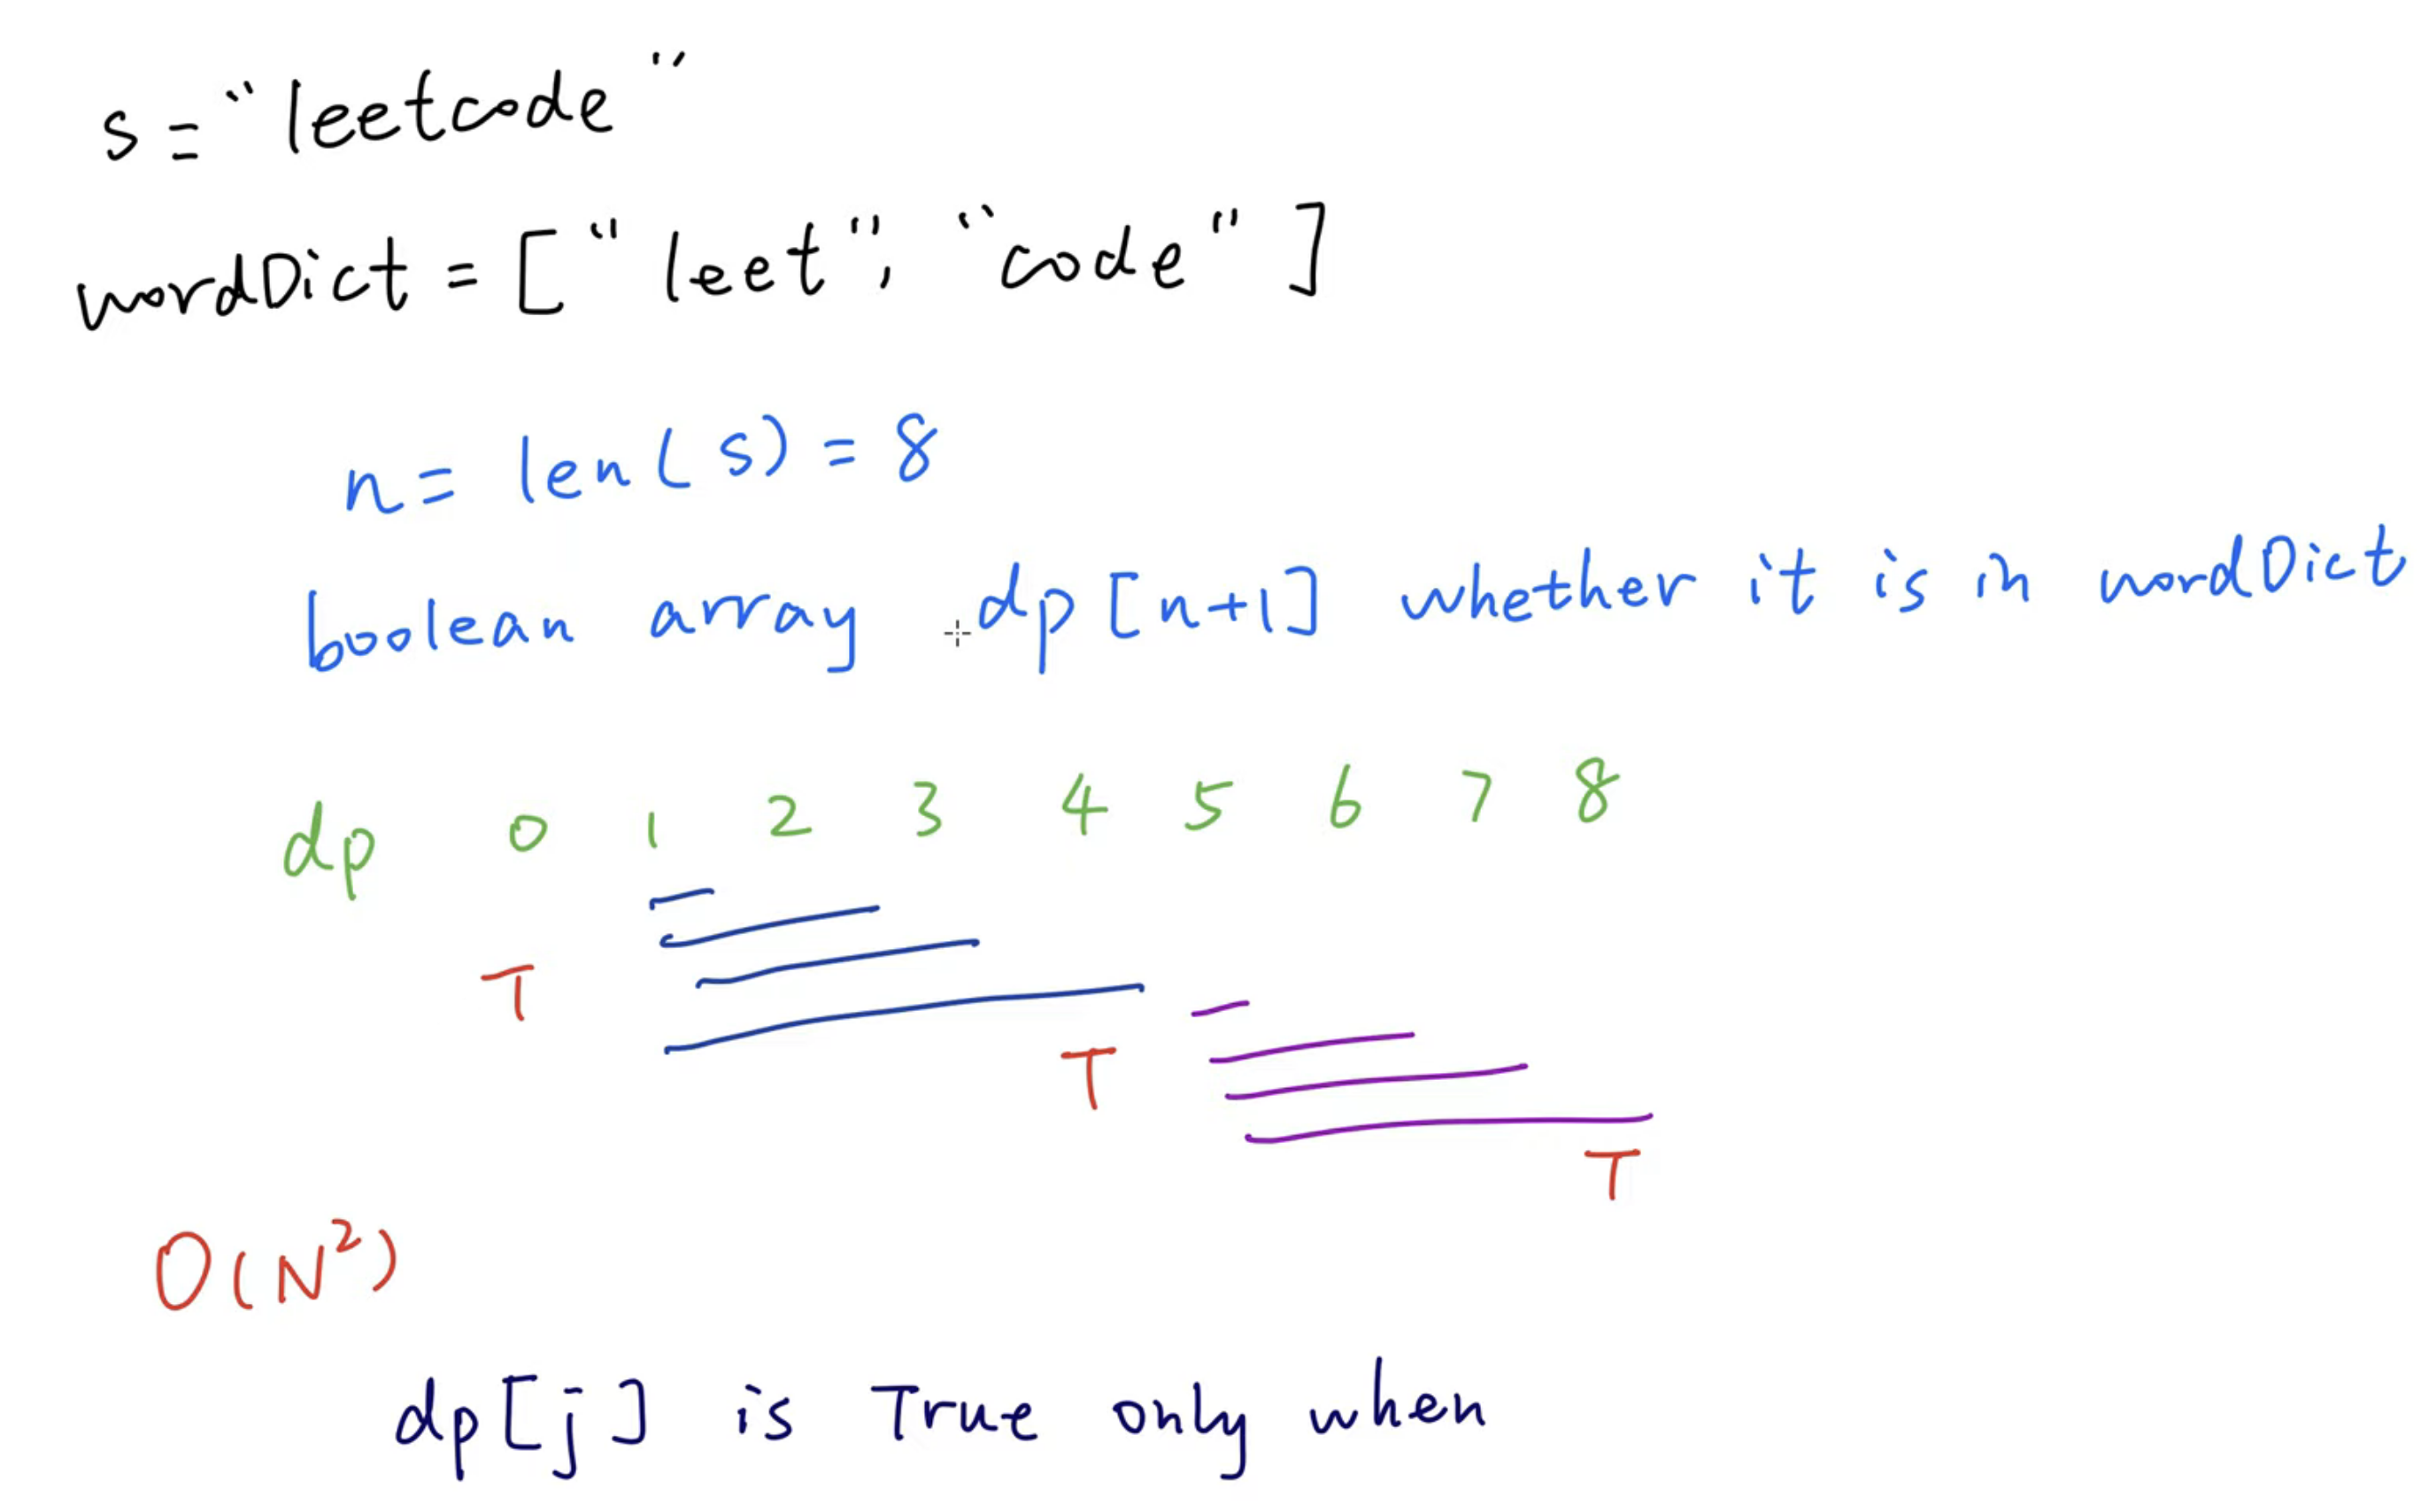 s = "leetcode"
wordDict = ["leet", "code"]
n = len(s) = 8
boolean array dp[n+1] whether it is in wordDict
dp 0 1 2 3 4 5 6 7 8
T
T
T
O(N²)
dp[j] is True only when